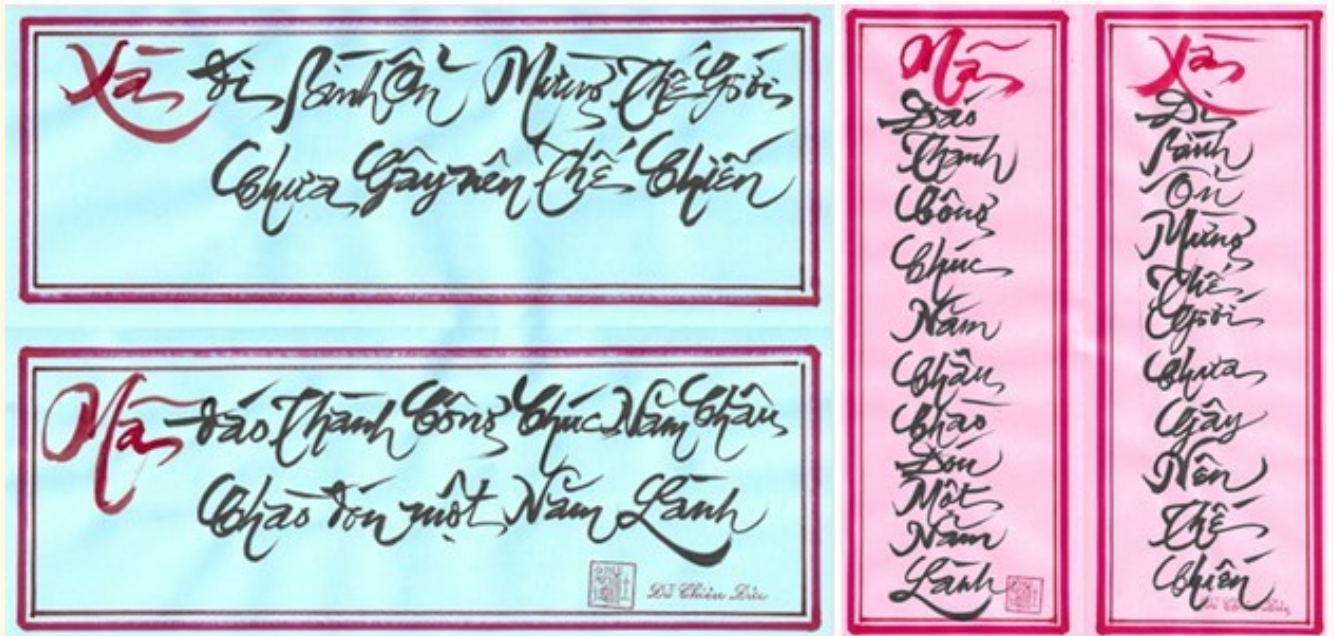 Xà đi Bình Ổn Mừng Thế Giới
Chưa Gây nên Thế Chiến
Mã đáo Thành Công Chúc Năm Châu
Chào đón một Năm Lành
Mã
Đáo
Thành
Công
Chúc
Năm
Châu
Chào
Đón
Một
Năm
Lành
Xà
Đi
Bình
Ổn
Mừng
Thế
Giới
Chưa
Gây
Nên
Thế
Chiến